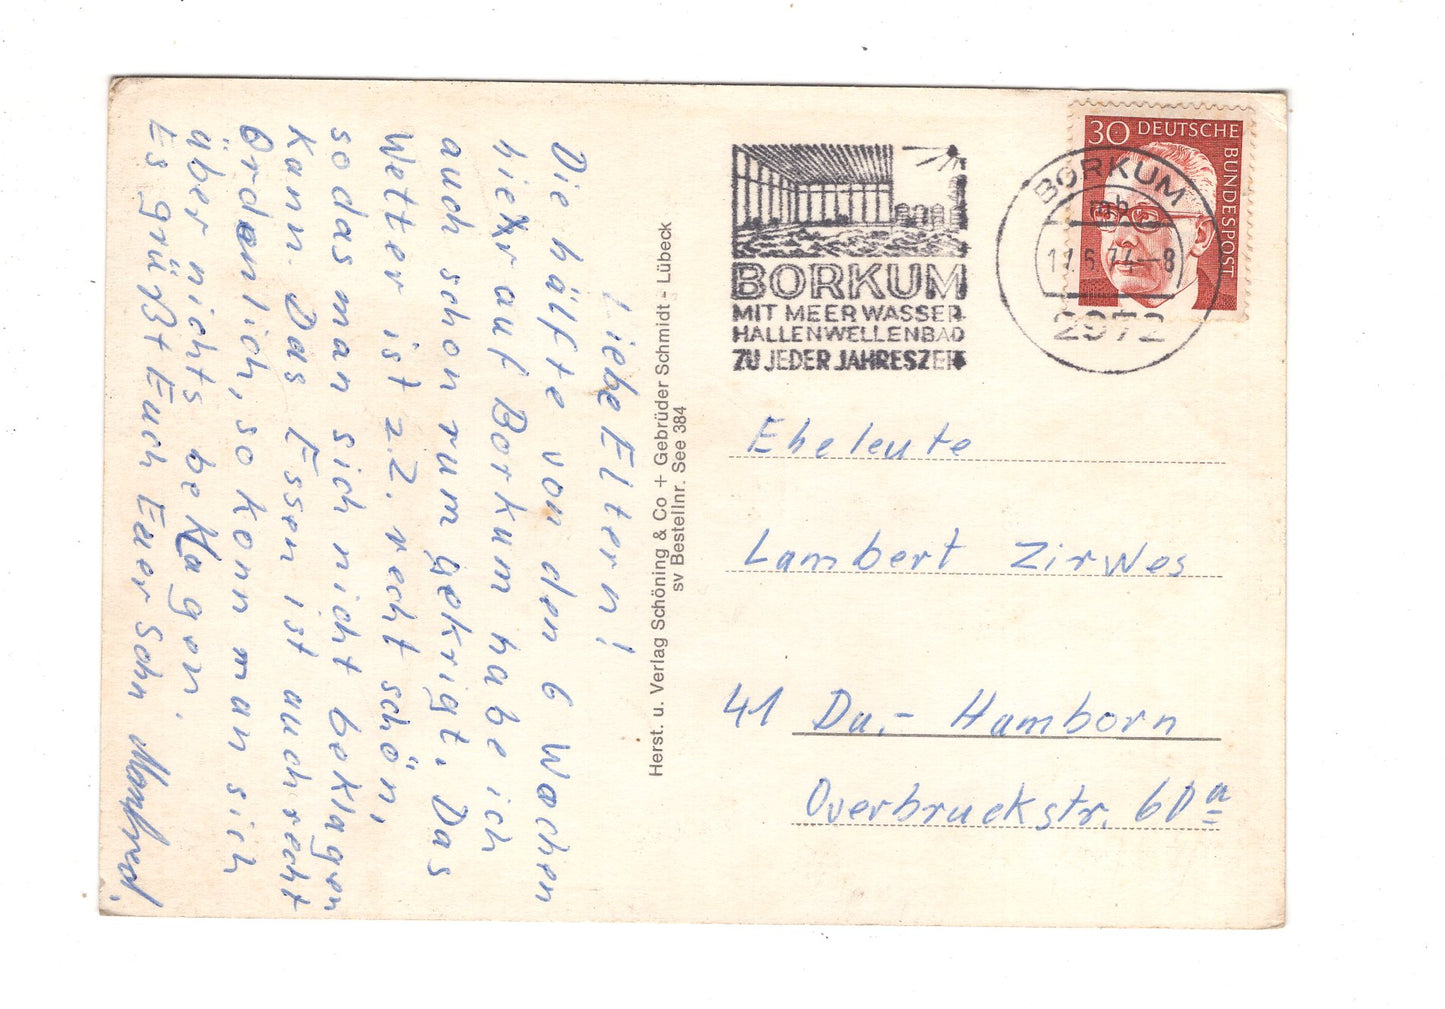 Liebe Eltern!
Die hälfte von den 6 Wochen
hier auf Borkum habe ich
auch schon rum gekrigt. Das
Wetter ist z.Z. recht schön,
sodas man sich nicht beklagen
kann. Das Essen ist auch recht
Ordenlich, so kann man sich
über nichts beklagen.
Es grüßt Euch Euer Sohn Manfred.
Herst. u. Verlag Schöning & Co + Gebrüder Schmidt - Lübeck
sv Bestellnr. See 384
BORKUM
MIT MEERWASSER-
HALLENWELLENBAD
ZU JEDER JAHRESZEIT
BORKUM
mb
2972
30 DEUTSCHE BUNDESPOST
Eheleute
Lambert Zirwes
41 Du.- Hamborn
Overbruckstr. 60 a